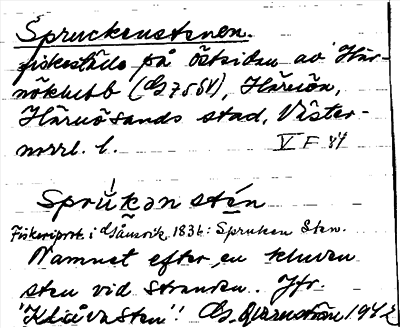 Spruckenstenen.
fiskeställe på östsidan av Här-
nöklubb (GS 75 ÖV), Härnön,
Härnösands stad, Väster-
norrl. l. V F 84
Sprŭkən stén
Fiskeriprot. i Gånsvik 1836: Sprucken Sten.
Namnet efter en kluven
sten vid stranden. Jfr.
"Klåvasten"! 1942